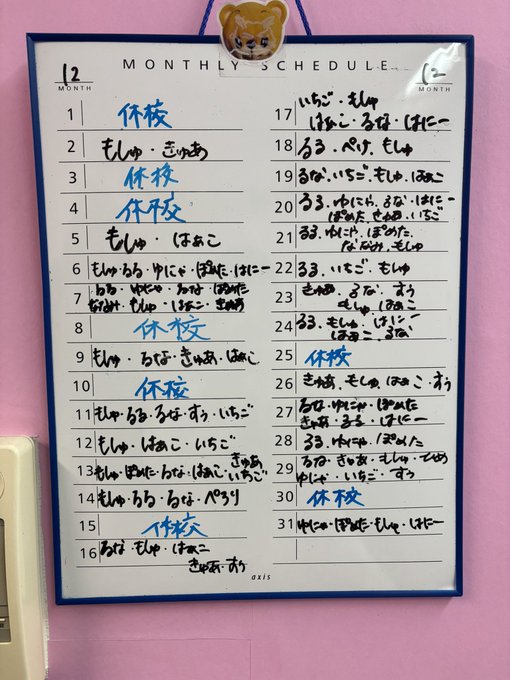 MONTHLY SCHEDULE
12 12
MONTH MONTH
1 休校
2 もしゅ・きゅあ
3 休校
4 休校
5 もしゅ・はぁこ
6 もしゅ・るる・ゆにゃ・ぽめた・はにー
7 るる・ゆにゃ・るな・ぽめた
ななみ・もしゅ・はぁこ・きゅあ
8 休校
9 もしゅ・るな・きゅあ・はぁこ
10 休校
11 もしゅ・るる・るな・すぅ・いちご
12 もしゅ・はぁこ・いちご
13 もしゅ・ぽめた・るな・はぁこ・きゅあ
いちご
14 もしゅ・るる・るな・ぺろり
15 休校
16 るな・もしゅ・はぁこ
きゅあ・すぅ
17 いちご・もしゅ
はぁこ・るな・はにー
18 るる・ぺけ・もしゅ
19 るな・いちご・もしゅ・はぁこ
20 るる・ゆにゃ・るな・はにー
ぽめた・きゅあ・いちご
21 るる・ゆにゃ・ぽめた・
ななみ・もしゅ
22 るる・いちご・もしゅ
23 きゅあ・るな・すぅ
もしゅ・はぁこ
24 るる・もしゅ・はにー
はぁこ・るな
25 休校
26 きゅあ・もしゅ・はぁこ・すぅ
27 るな・ゆにゃ・ぽめた
きゅあ・るる・はにー
28 るる・ゆにゃ・ぽめた
29 るな・きゅあ・もしゅ・
ゆにゃ・いちご・すぅ
30 休校
31 ゆにゃ・ぽめた・もしゅ・はにー
axis